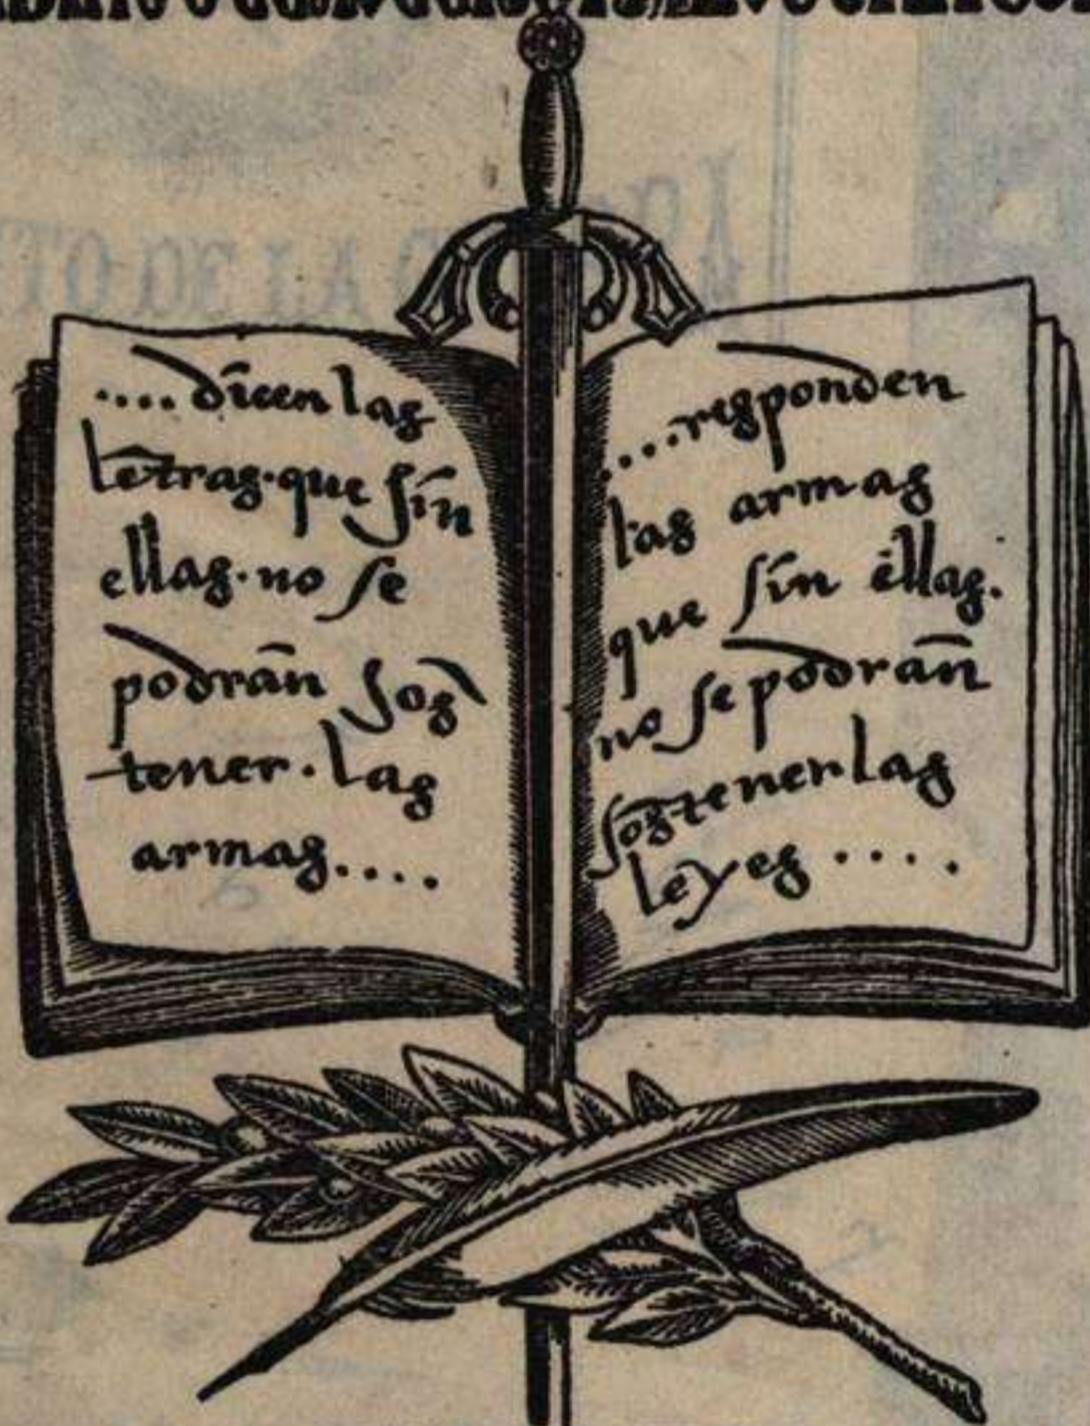 ....dicen las
letras·que sin
ellas·no se
podrán sos
tener·las
armas....
....responden
las armas
que sin ellas.
no se podrán
sostener las
leyes....